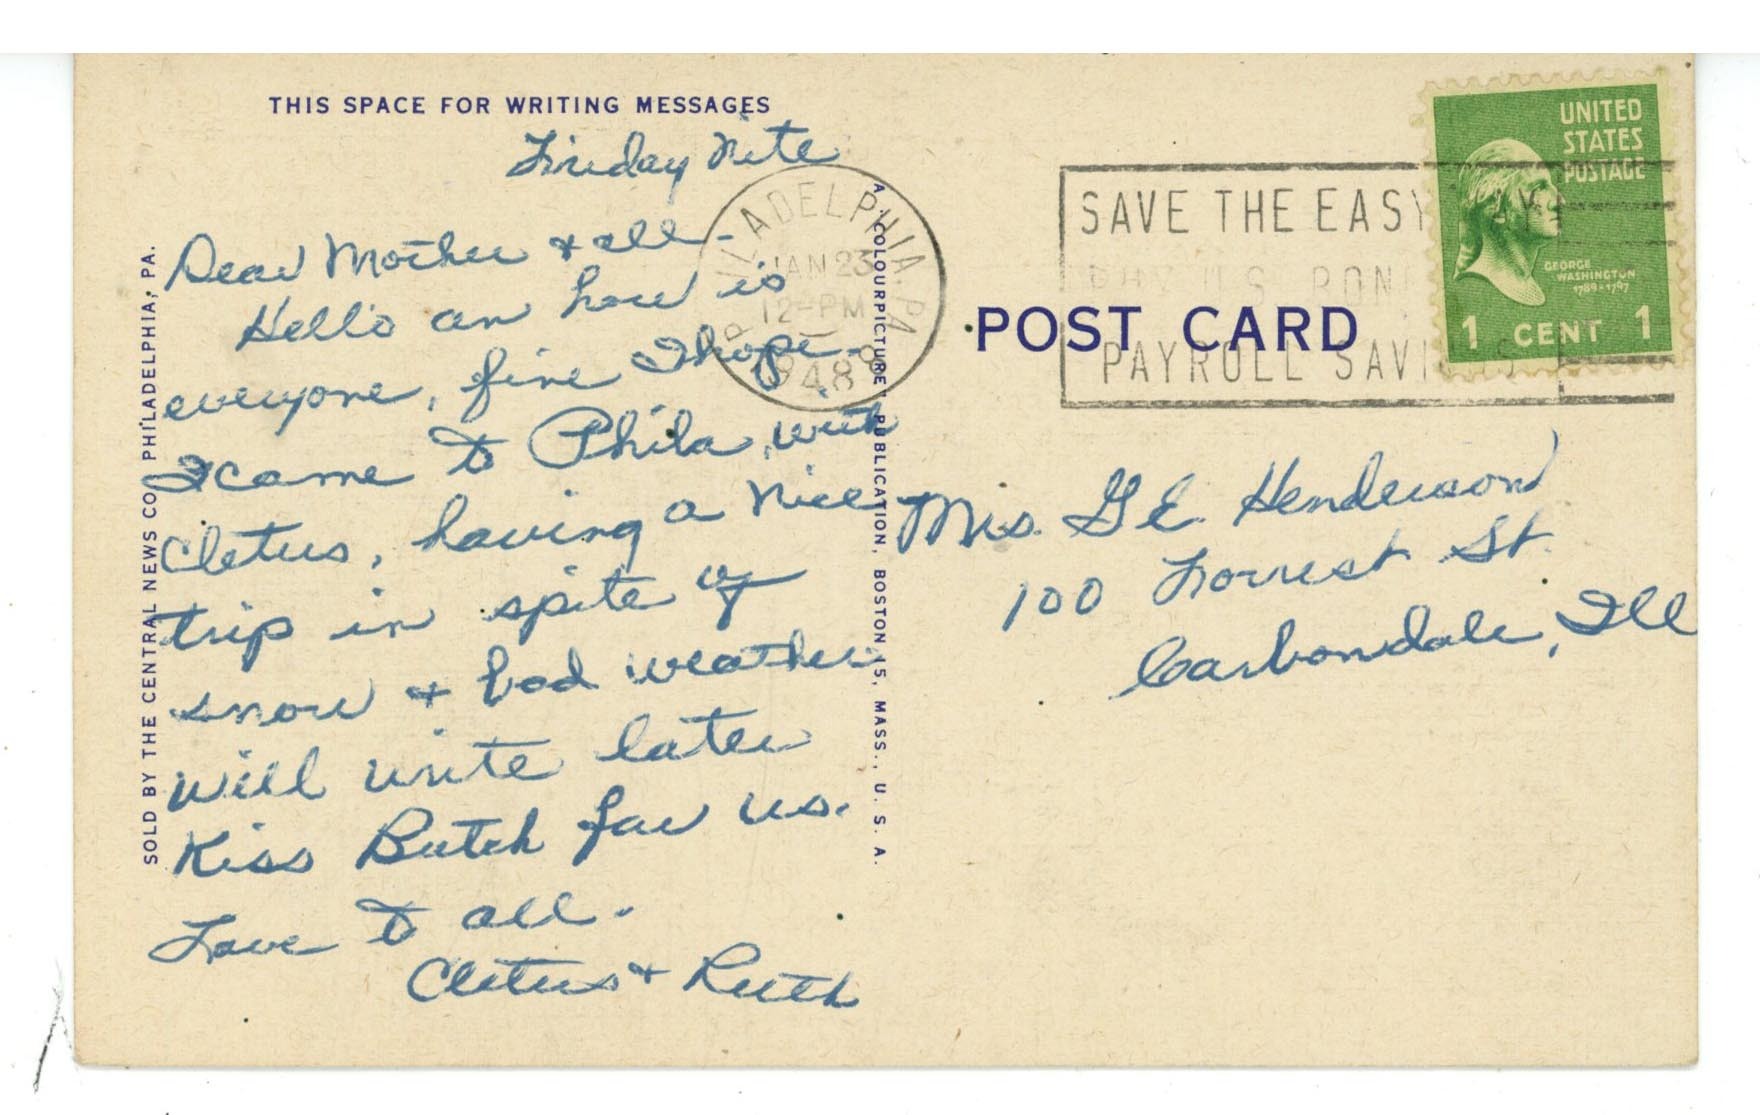 THIS SPACE FOR WRITING MESSAGES
Friday Nite
Dear Mother & all -
Hello an how is
everyone, fine I hope.
I came to Phila, with
Cletus, having a nice
trip in spite of
snow & bad weather
will write later
Kiss Butch for us.
Love to all.
Cletus & Ruth
SOLD BY THE CENTRAL NEWS CO., PHILADELPHIA, PA.
A "COLOURPICTURE" PUBLICATION, BOSTON 15, MASS., U. S. A.
PHILADELPHIA, PA
JAN 23
12-PM
1948
SAVE THE EASY WAY
BUY U.S. BON
PAYROLL SAVINGS
POST CARD
UNITED
STATES
POSTAGE
GEORGE
WASHINGTON
1789-1797
1 CENT 1
Mrs. G E. Henderson
100 Forrest St.
Carbondale, Ill